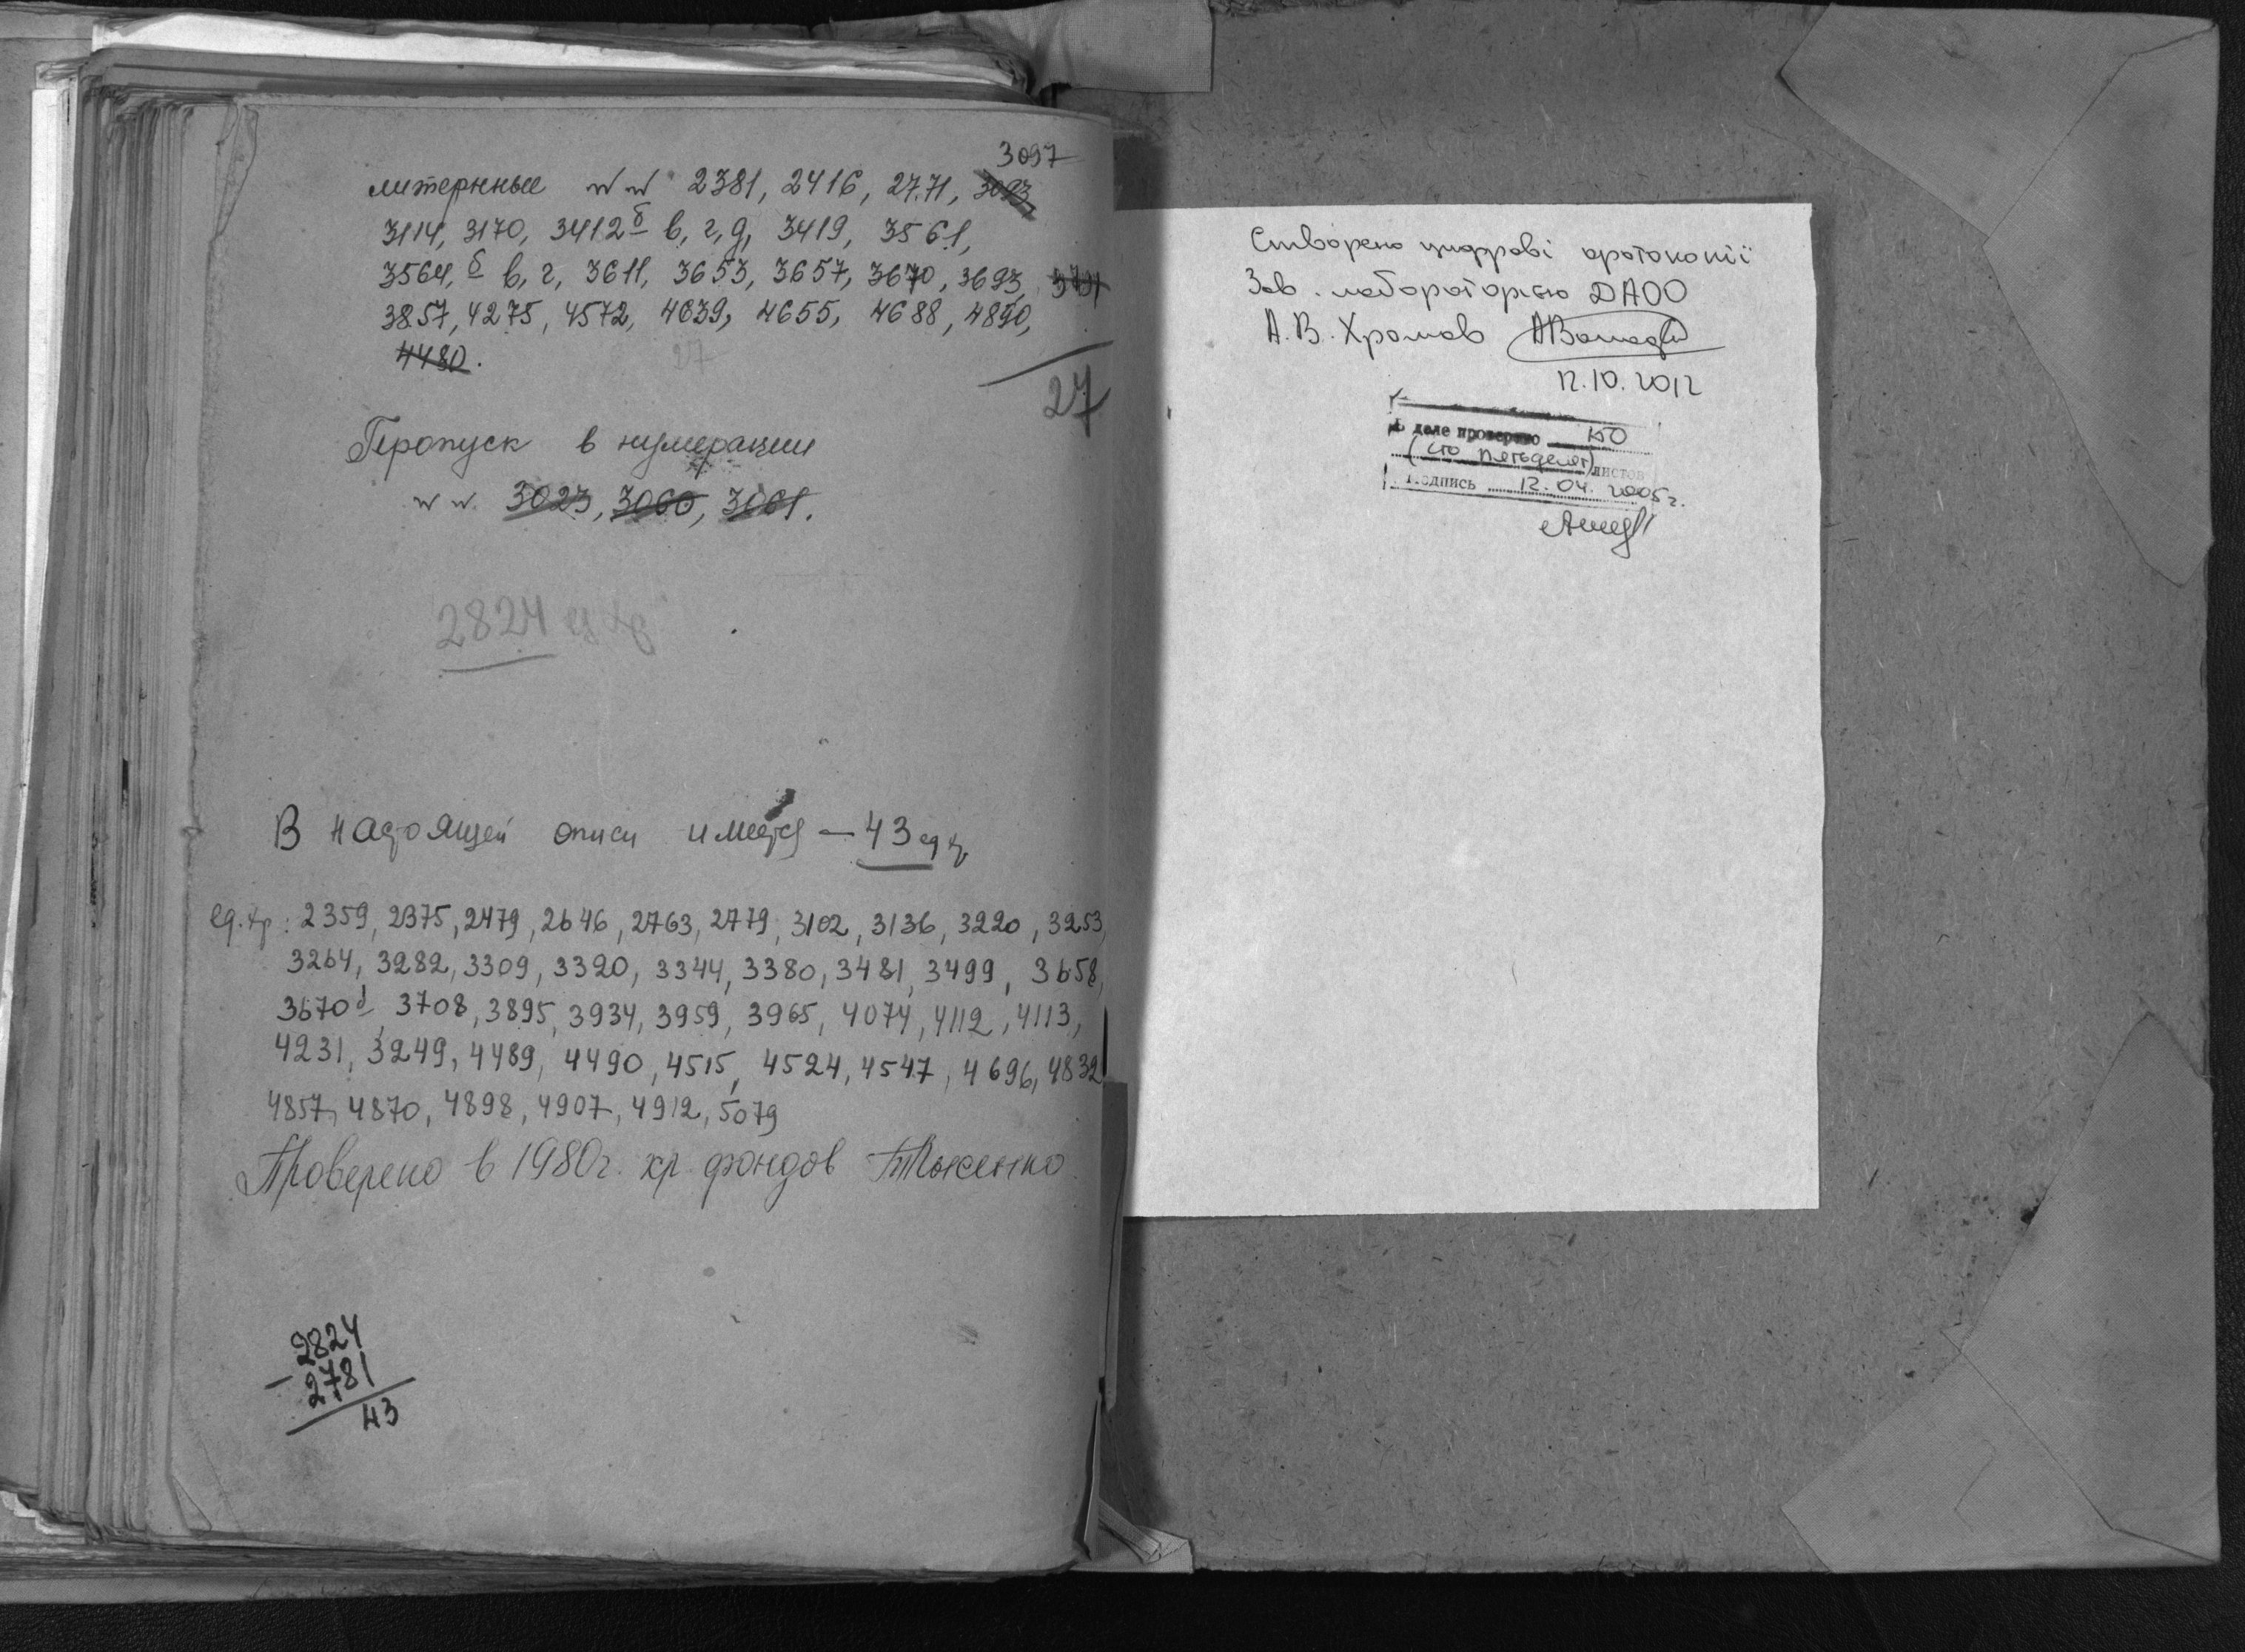 3097
литерные №№ 2381, 2416, 2771, 3093,
3114, 3170, 3412б в, г, д, 3419, 3561,
3564, б в, г, 3611, 3653, 3657, 3670, 3693,
3857, 4275, 4572, 4639, 4655, 4688, 4890,
4480.
27
27
Пропуск в нумерации
№№ 3023, 3060, 3061.
2824 ед хр
В настоящей описи имеется — 43 ед хр
ед. хр: 2359, 2375, 2479, 2646, 2763, 2779, 3102, 3136, 3220, 3253,
3264, 3282, 3309, 3320, 3344, 3380, 3481, 3499, 3658,
3670б, 3708, 3895, 3934, 3959, 3965, 4074, 4112, 4113,
4231, 3249, 4489, 4490, 4515, 4524, 4547, 4696, 4832
4857, 4870, 4898, 4907, 4912, 5079
Проверено в 1980г. хр. фондов
2824
- 2781
43
Створено цифрові фотокопії
Зав. лабораторією ДАОО
А.В. Хромов
12.10.2012
В деле проверено 150
(сто пятьдесят) листов
Подпись 12.04.2005г.